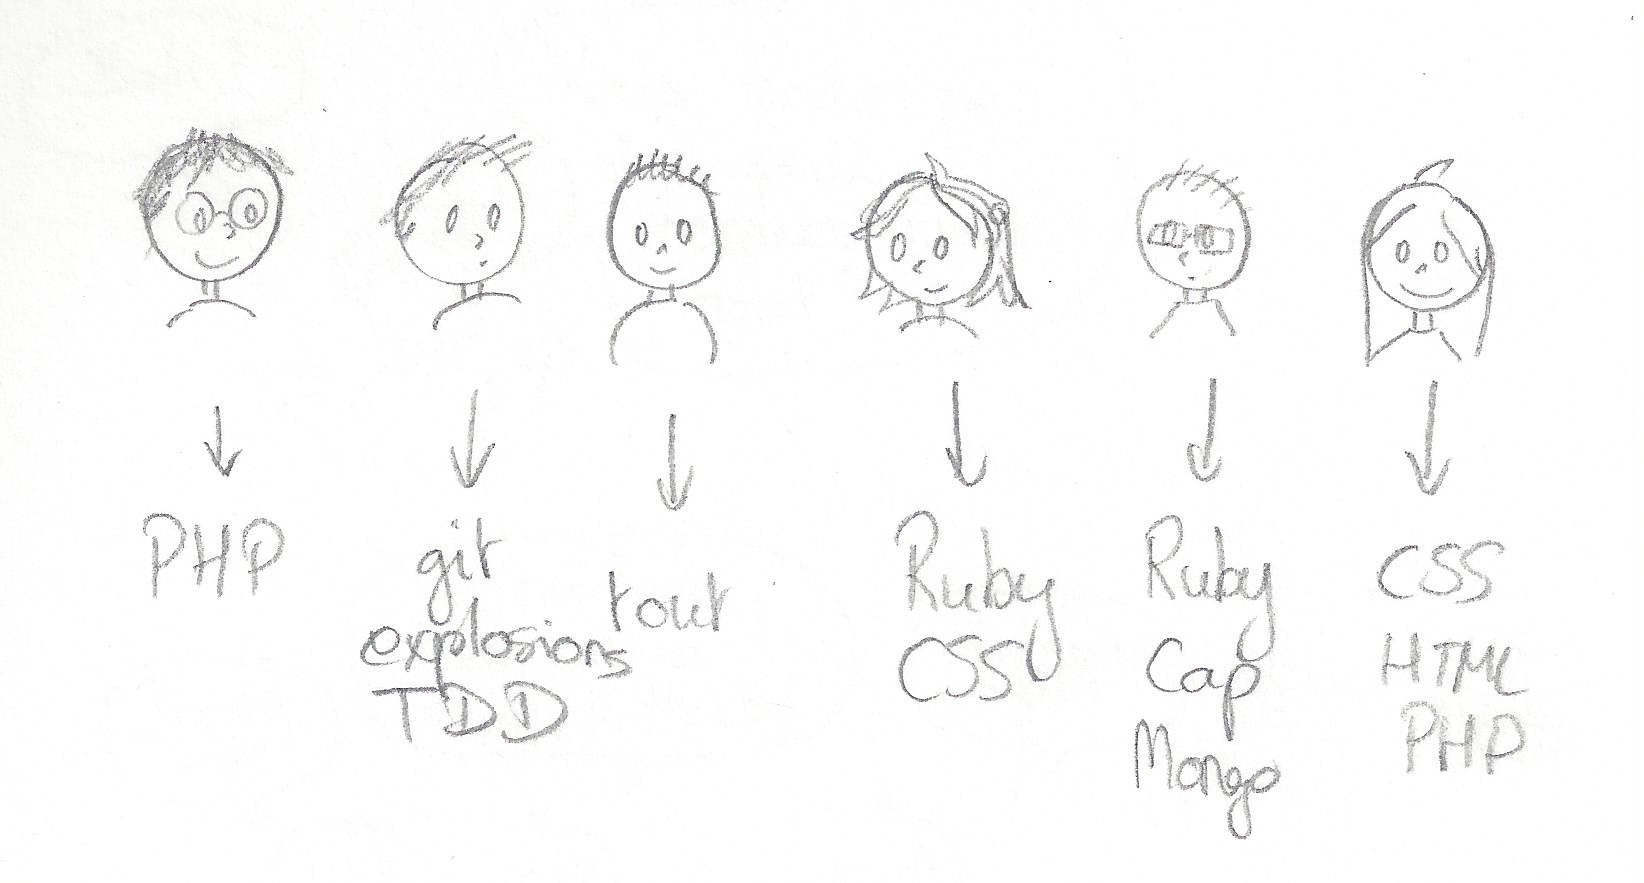 PHP
git
explosions
TDD
tout
Ruby
CSS
Ruby
Cap
Mongo
CSS
HTML
PHP